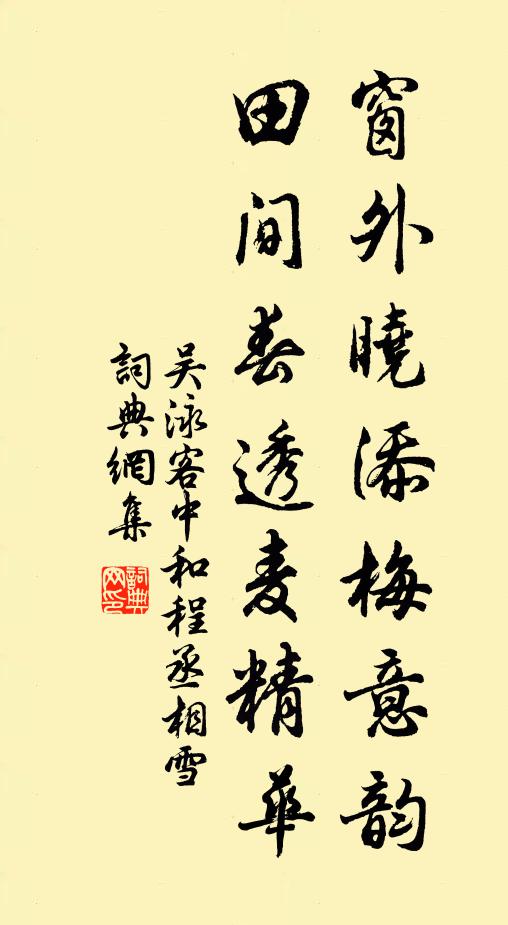 窗外曉添梅意韵
田间春透麦精華
吴泳客中和程丞相雪
詞典網集
詞典
网印